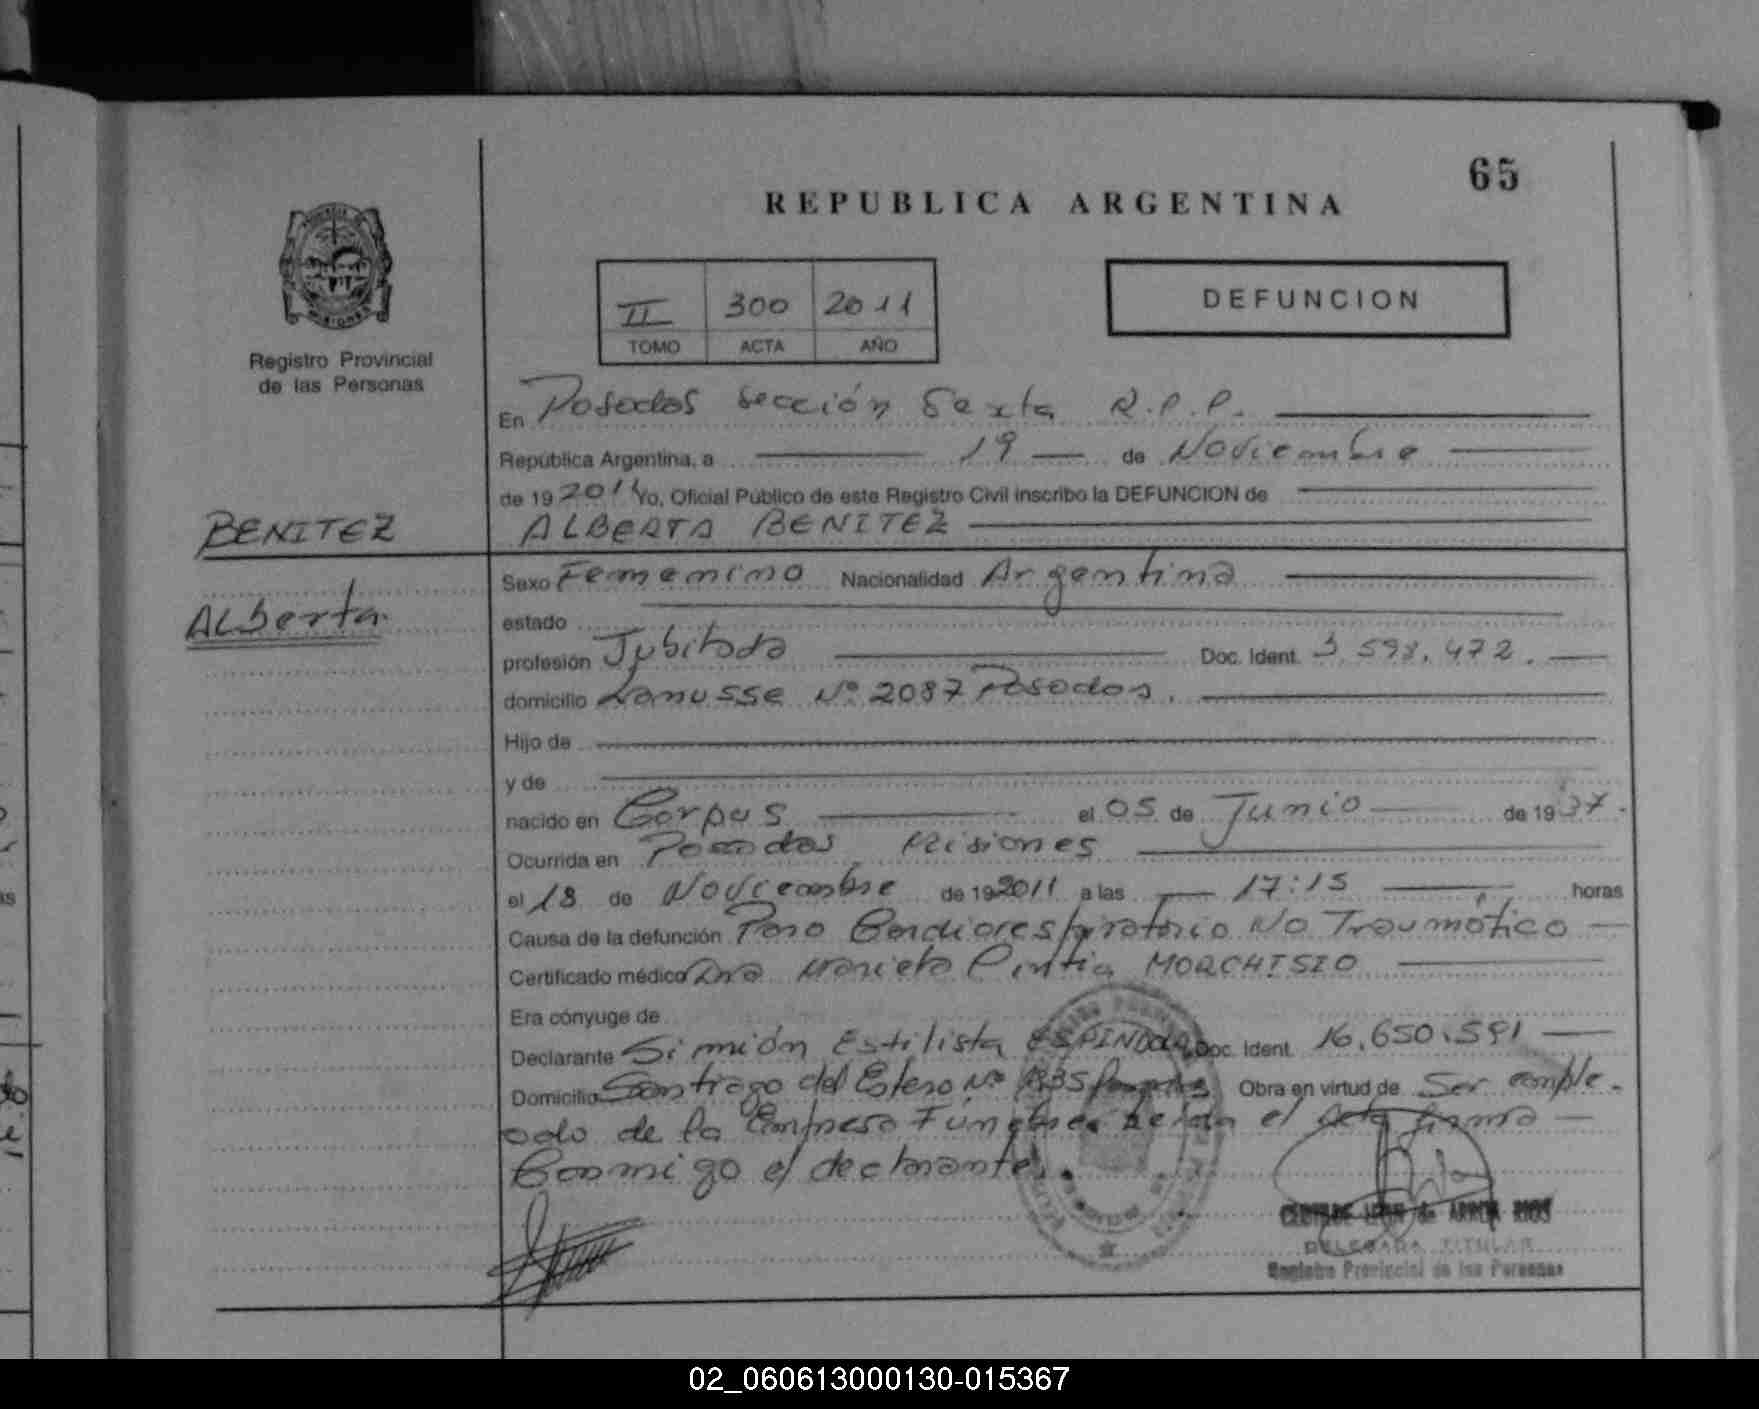 65
REPUBLICA ARGENTINA
MISIONES
Registro Provincial
de las Personas
II 300 2011
TOMO ACTA AÑO
DEFUNCION
En Posadas sección Sexta R.P.P.
República Argentina, a 19 de Noviembre
de 19 2011 Yo, Oficial Público de este Registro Civil inscribo la DEFUNCION de
BENITEZ
ALBERTA BENITEZ
Alberta
Sexo Femenino Nacionalidad Argentina
estado
profesión Jubilada Doc. Ident. 3.598.472.
domicilio Lanusse Nº 2087 Posadas.
Hijo de
y de
nacido en Corpus el 05 de Junio de 19 37.
Ocurrida en Posadas Misiones
el 18 de Noviembre de 19 2011 a las 17:15 horas
Causa de la defunción Paro Cardiorespiratorio No Traumático
Certificado médico Dra Marieta Cintia MORCHISIO
Era cónyuge de
Declarante Simión Estilista ESPINDOLA Doc. Ident. 16.650.591
Domicilio Santiago del Estero Nº 1835 Posadas Obra en virtud de Ser emple-
ado de la Empresa Fúnebre. Leída el Acta firma
Conmigo el declarante.
DELEGADA TITULAR
Registro Provincial de las Personas
02_060613000130-015367